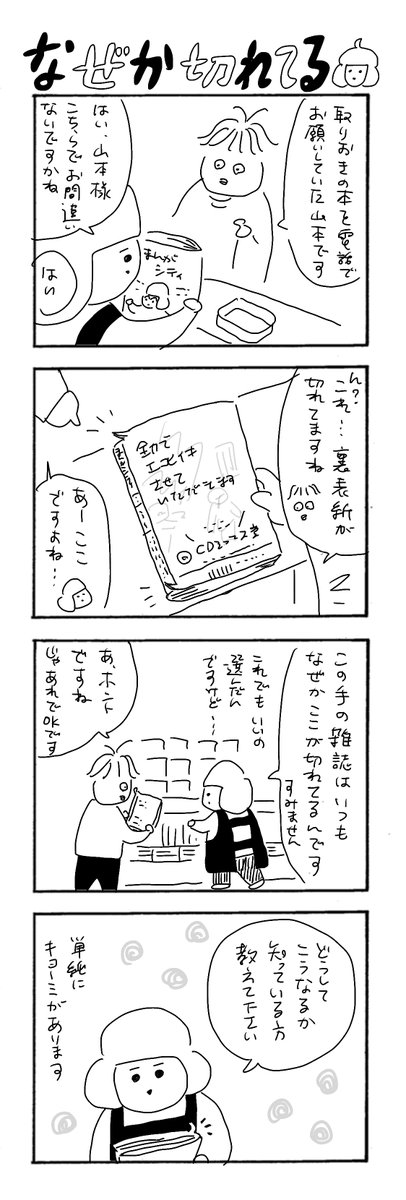 なぜか切れてる
取りおきの本を電話で
お願いしていた山本です
はい、山本様
こちらでお間違い
ないですかね
はい
まんが
シティ
ん?
これ…裏表紙が
切れてますね
あーここ
ですよね…
この手の雑誌はいつも
なぜかここが切れてるんです
すみません
これでもいいの
選んだん
ですけど…
あ、ホント
ですね
じゃあれでOKです
どうして
こうなるか
知っている方
教えて下さい
単純に
キョーミがあります